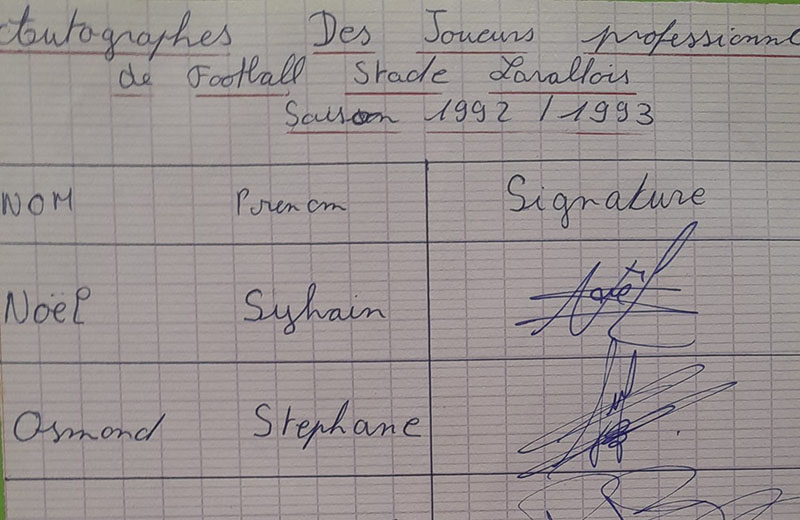 Autographes Des Joueurs professionne
de Football Stade Lavallois
Saison 1992 / 1993
NOM Prenom Signature
Noël Sylvain Noël
Osmond Stephane